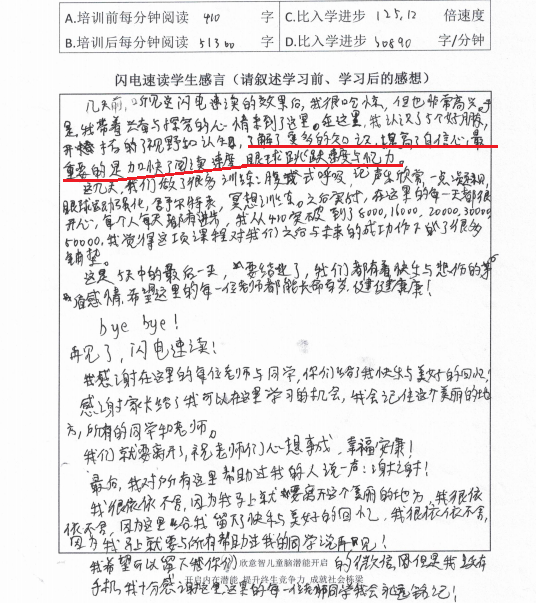 A.培训前每分钟阅读 410 字 C.比入学进步 125.12 倍速度
B.培训后每分钟阅读 51300 字 D.比入学进步 50890 字/分钟
闪电速读学生感言（请叙述学习前、学习后的感想）
几天前，听说这闪电速读的效果后，我很吃惊，但也非常高兴。于
是，我带着兴奋与探究的心情来到了这里。在这里，我认识了5个好朋友，
我的视野和认知，了解了更多的知识，提高了自信心，最
重要的是加快了阅读速度，眼球跳跃速度与亿力。
这几天，我们做了很多训练：腹式呼吸，记声
眼球 冥想训练。之后 在这里的每一天都很
开心，每个人每天都有进步，我从410突破到了8000，16000，20000，30000
50000，我觉得这项课程对我们之后与未来的成功作下的了很多
铺垫。
这是5天中的最后一天，要结业了，我们都有着快乐与悲伤的
感情，希望这里的每一位老师都能长命百岁，健健康康！
bye bye！
再见了，闪电速读！
我感谢在这里的每位老师与同学，你们给了我快乐与美好的回忆！
感谢家长给了我可以在这里学习的机会，我会记住这个美丽的地
方，所有的同学和老师。
我们就要离开了，祝老师们心想事成，幸福安康！
最后，我对所有这里帮助过我的人说一声：谢谢！
我很依依不舍，因为我马上就要离开这个美丽的地方，我很依
依不舍，因为这里给我留了快乐与美好的回忆，我很依依不舍，
因为我马上就要与所有帮助过我的同学说再见！
欣意智儿童脑潜能开启
我希望可以留下你们的微信，但是我没有
开启内在潜能 提升终生竞争力 成就社会栋梁
手机，我十分感谢这里的每一位老师同学我会永远铭记！